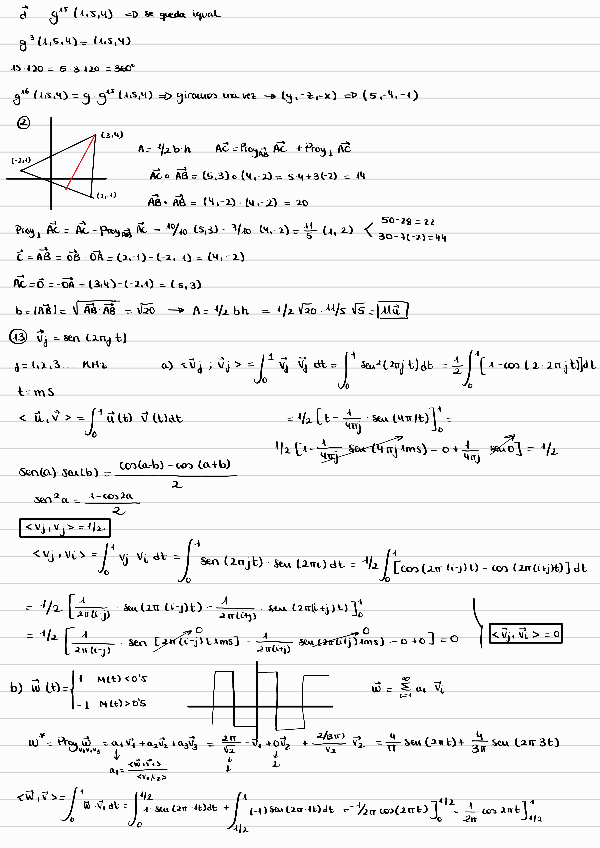 d⃗ g¹⁵ (1,5,4) => se queda igual
g³(1,5,4) = (1,5,4)
15·120 = 5·3·120 = 360°
g¹⁶(1,5,4) = g·g¹⁵(1,5,4) => giramos una vez → (y,-z,-x) => (5,-4,-1)
②
(3,4)
(-2,1)
(2,-1)
A = 1/2 b·h AC⃗ = Proy_AB AC⃗ + Proy⊥ AC⃗
AC⃗ ∘ AB⃗ = (5,3) ∘ (4,-2) = 5·4+3(-2) = 14
AB⃗ ∘ AB⃗ = (4,-2)·(4,-2) = 20
Proy⊥ AC⃗ = AC⃗ - Proy_AB AC⃗ = 10/10 (5,3) - 7/10 (4,-2) = 11/5 (1,2) < 50-28=22
30-7(-2)=44
C⃗ = AB⃗ = OB⃗ OA⃗ = (2,-1)-(-2,1) = (4,-2)
AC⃗ = O⃗ = -OA⃗ - (3,4)-(-2,1) = (5,3)
b = |AB⃗| = √(AB⃗·AB⃗) = √20 → A = 1/2 bh = 1/2 √20 · 11/5 √5 = 11u⃗
⑬ V⃗j = sen (2πjt)
j = 1,2,3... KHz a) <V⃗j ; V⃗j> = ∫₀¹ V⃗j V⃗j dt = ∫₀¹ sen²(2πjt)dt = 1/2 ∫₀¹ [1-cos(2·2πjt)]dt
t = ms
<u⃗,v⃗> = ∫₀¹ u⃗(t)·v⃗(t)dt = 1/2 [t - 1/4πj · sen(4πjt)]₀¹ =
1/2 [1 - 1/4πj sen(4πj1ms) - 0 + 1/4πj sen0] = 1/2
sen(a)·sen(b) = (cos(a-b) - cos(a+b))/2
sen²a = (1-cos2a)/2
<Vj,Vj> = 1/2
<Vj,Vi> = ∫₀¹ Vj Vi dt = ∫₀¹ sen(2πjt)·sen(2πi)dt = 1/2 ∫₀¹ [cos(2π(i-j)t) - cos(2π(i+j)t)]dt
= 1/2 [1/2π(i-j) · sen(2π(i-j)t) - 1/2π(i+j) · sen(2π(i+j)t)]₀¹
= 1/2 [1/2π(i-j) · sen[2π(i-j)t1ms) 0 - 1/2π(i+j) sen(2π(i+j)1ms) 0 - 0+0] = 0 <V⃗j,V⃗i> = 0
b) w⃗(t) = { 1 M(t)<0'5
-1 M(t)>0'5
w⃗ = Σ ai V⃗i
w* = Proy w⃗ = a₁V⃗₁ + a₂V⃗₂ + a₃V⃗₃ = + 0V⃗₂ + = 4/π sen(2πt) + 4/3π sen(2π3t)
<w⃗,v⃗> = ∫₀¹ w⃗·v⃗₁dt = ∫₀^1/2 1·sen(2π·1t)dt + ∫_1/2^1 (-1) sen(2π·1t)dt = -1/2π cos(2πt)]₀^1/2 - 1/2π cos2πt]_1/2^1